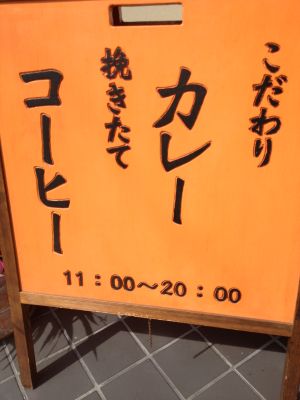 こだわり
カレー
挽きたて
コーヒー
11：00～20：00